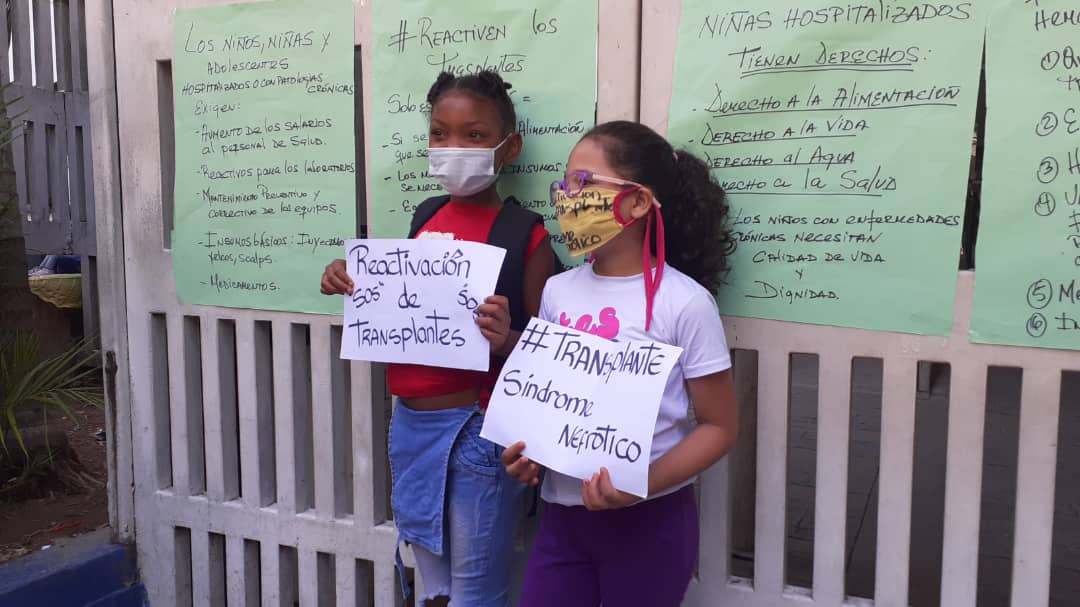 LOS NIÑOS, NIÑAS Y
ADOLESCENTES
HOSPITALIZADOS O CON PATOLOGÍAS
CRÓNICAS
EXIGEN:
- AUMENTO DE LOS SALARIOS
AL PERSONAL DE SALUD.
- REACTIVOS PARA LOS LABORATORIOS
- MANTENIMIENTO PREVENTIVO Y
CORRECTIVO DE LOS EQUIPOS.
- INSUMOS BÁSICOS:
YELCOS, SCALPS.
- MEDICAMENTOS.
# REACTIVEN LOS
TRASPLANTES
SOLO
- SI SE ALIMENTACIÓN
QUE
- LOS INSUMOS
SE
NIÑAS HOSPITALIZADOS
TIENEN DERECHOS:
- DERECHO A LA ALIMENTACIÓN
DERECHO A LA VIDA
DERECHO AL AGUA
DERECHO A LA SALUD
LOS NIÑOS CON ENFERMEDADES
CRÓNICAS NECESITAN
CALIDAD DE VIDA
Y
DIGNIDAD.
①
②
③
④
⑤
⑥
REACTIVACIÓN
"SOS" DE SOS
TRANSPLANTES
# TRANSPLANTE
SÍNDROME
NEFRÓTICO